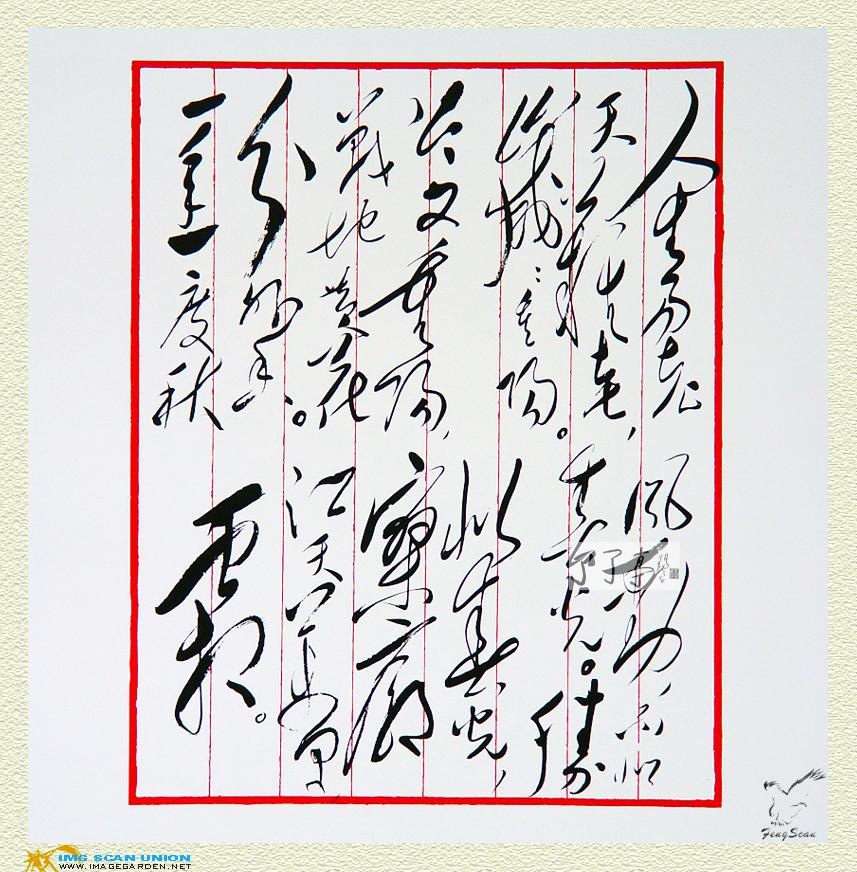 人生易老
天難老,
歲々重陽。
今又重陽,
戰地黄花
分外香。
一年一度秋
風勁,不似
春光。勝
似春光,
寥廓
江天萬里
霜。
FengScan
IMG SCAN UNION
WWW.IMAGEGARDEN.NET